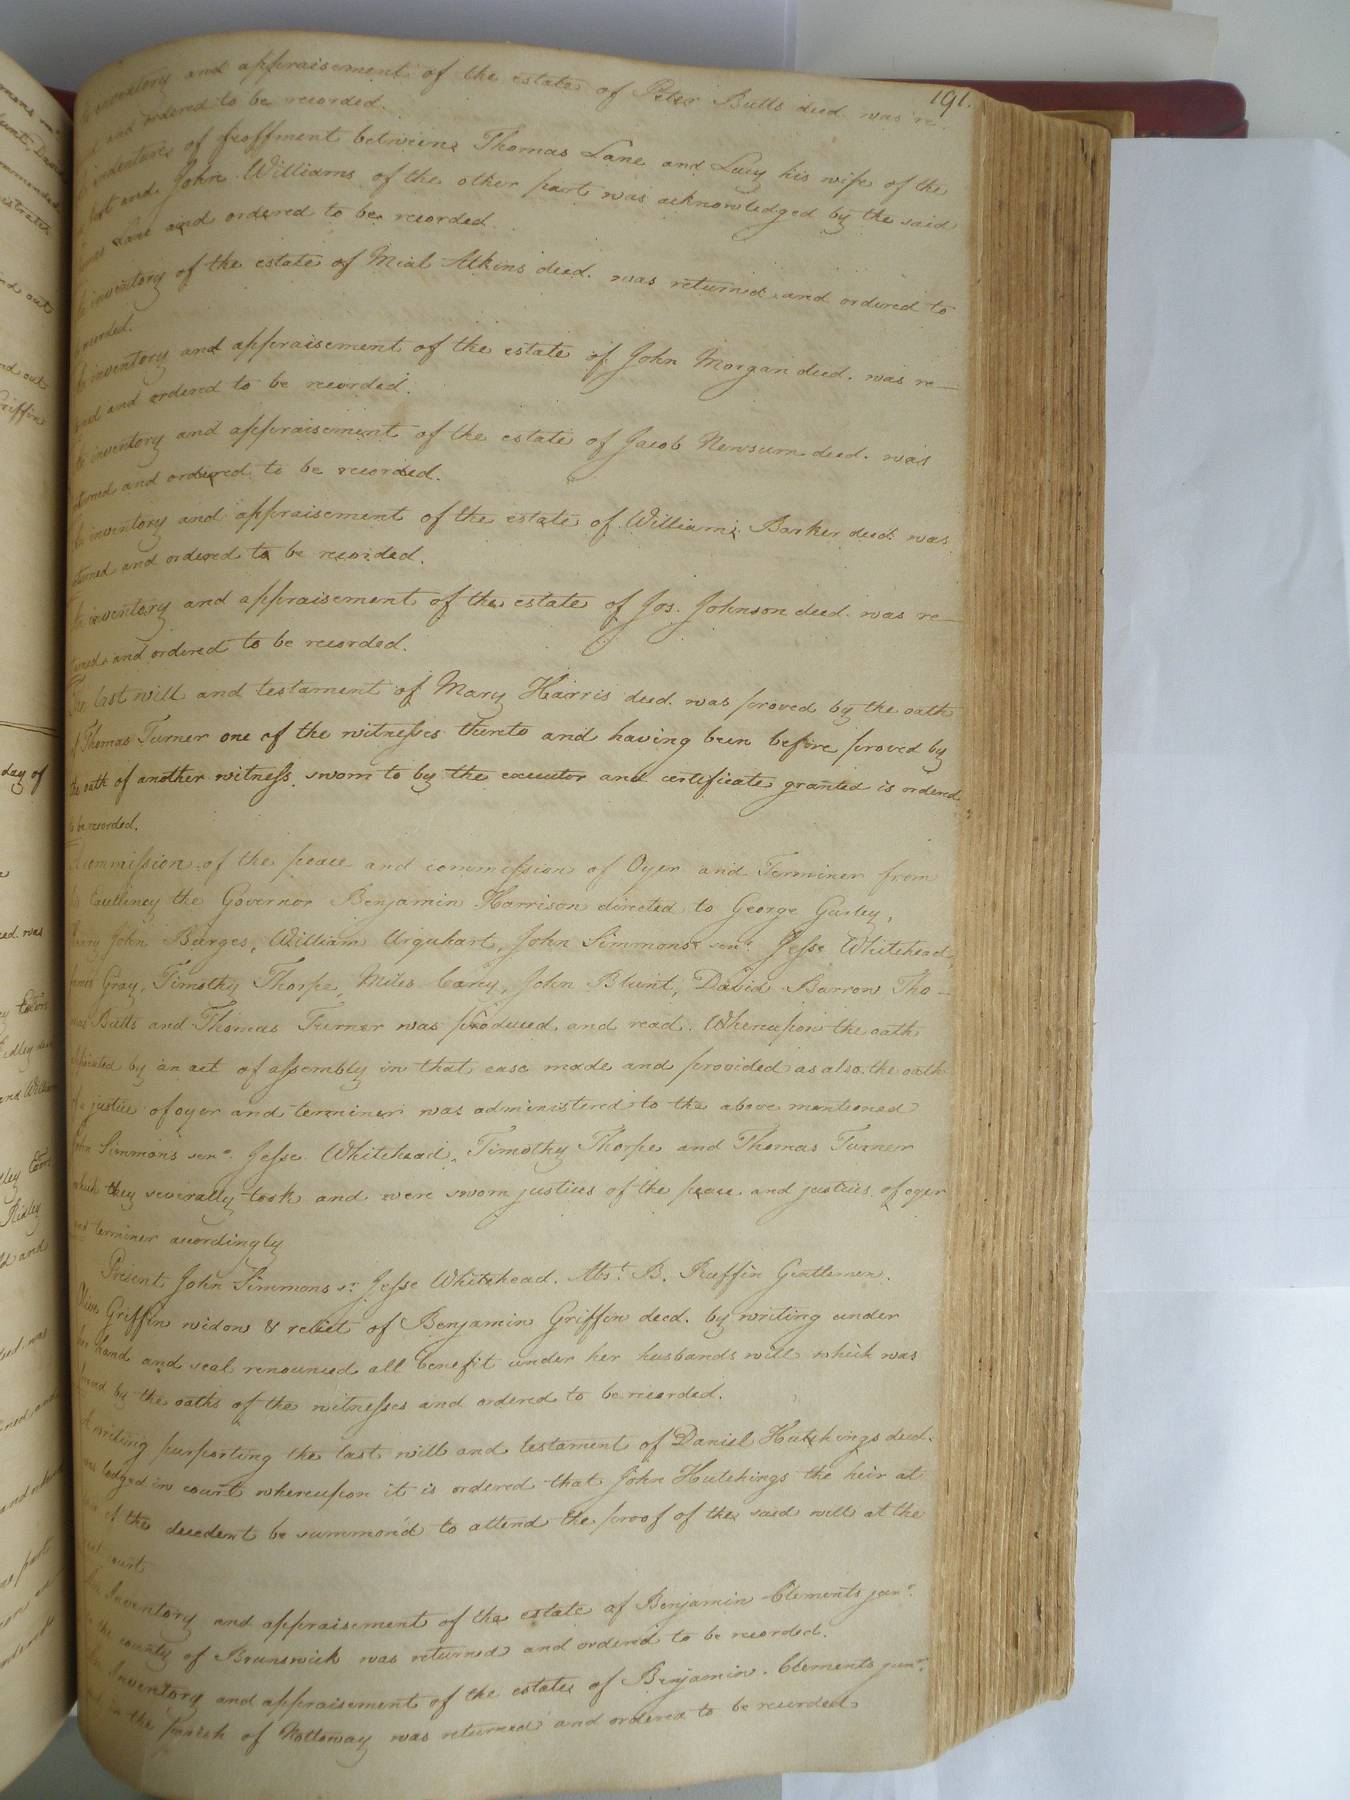 191.
inventory and appraisement of the estate of Peter Butts deed was re
and ordered to be recorded.
indenture of feoffment between Thomas Lane and Lucy his wife of the
part and John Williams of the other part was acknowledged by the said
Lane and ordered to be recorded.
inventory of the estate of Mial Atkins deed. was returned and ordered to
recorded.
inventory and appraisement of the estate of John Morgan deed. was re—
and ordered to be recorded.
inventory and appraisement of the estate of Jacob Newsum deed. was
and ordered to be recorded.
inventory and appraisement of the estate of William Barker deed was
and ordered to be recorded.
The inventory and appraisement of the estate of Jos. Johnson deed. was re—
and ordered to be recorded.
The last will and testament of Mary Harris deed. was proved by the oath
of Thomas Turner one of the witnesses thereto and having been before proved by
the oath of another witness sworn to by the executor and certificate granted is ordered
to be recorded.
A commission of the peace and commission of Oyer and Terminer from
Excellency the Governor Benjamin Harrison directed to George Gurley,
Henry John Burges, William Urquhart, John Simmons senr. Jesse Whitehead,
James Gray, Timothy Thorpe, Miles Cary, John Blunt, David Barrow Tho—
mas Butts and Thomas Turner was produced and read. Whereupon the oath
appointed by an act of assembly in that case made and provided as also the oath
of a justice of oyer and terminer was administered to the above mentioned
John Simmons senr. Jesse Whitehead, Timothy Thorpe and Thomas Turner
which they severally took and were sworn justices of the peace and justices of oyer
and terminer accordingly
Present John Simmons sr. Jesse Whitehead. Abst. B. Ruffin Gentlemen.
Griffin widow & relict of Benjamin Griffin deed. by writing under
her hand and seal renounced all benefit under her husbands will which was
proved by the oaths of the witnesses and ordered to be recorded.
A writing purporting the last will and testament of Daniel Hutchings deed.
was lodged in court whereupon it is ordered that John Hutchings the heir at
of the decedent be summon'd to attend the proof of the said will at the
court
An Inventory and appraisement of the estate of Benjamin Clements junr.
in the county of Brunswick was returned and ordered to be recorded.
An Inventory and appraisement of the estate of Benjamin Clements junr.
in the parish of Nottoway was returned and ordered to be recorded